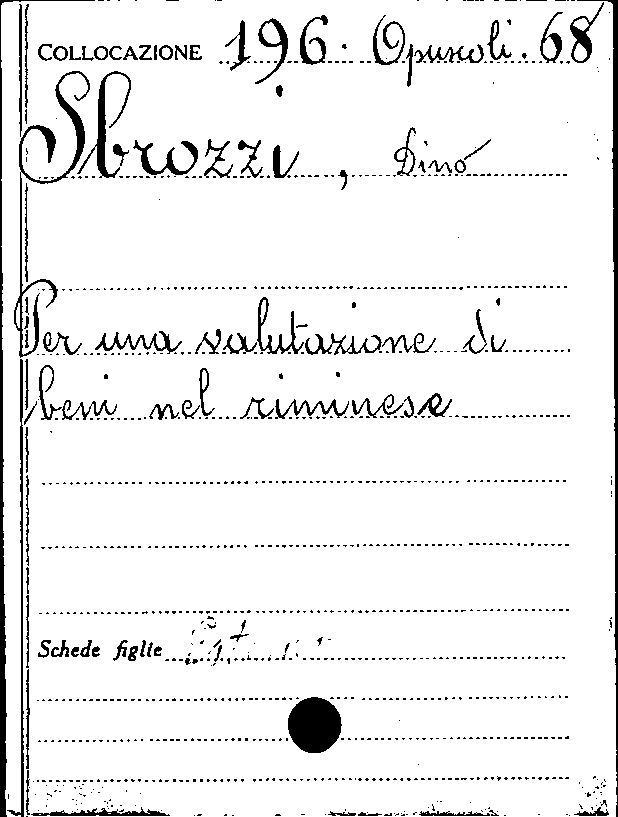 COLLOCAZIONE 196. Opuscoli. 68
Sbrozzi, Dino
Per una valutazione di
beni nel riminese
Schede figlie